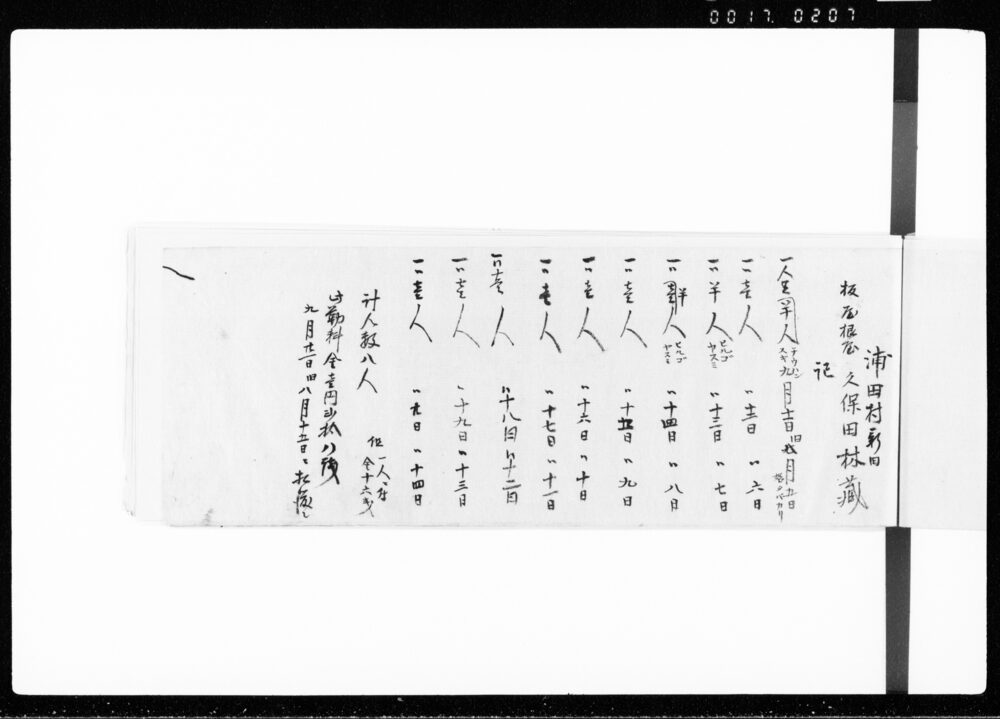 0017 0207
浦田村新田
板屋根屋 久保田林藏
記
一人足半人 テウハンスギ 九月十一日 旧八月五日
〃壱人 〃十二日 〃六日
〃半人 ヒルゴヤスミ 〃十三日 〃七日
〃半人 ヒルゴヤスミ 〃十四日 〃八日
〃壱人 〃十五日 〃九日
〃壱人 〃十六日 〃十日
〃壱人 〃十七日 〃十一日
〃壱人 〃十八日 〃十二日
〃壱人 〃十九日 〃十三日
〃壱人 〃廿日 〃十四日
計人数八人 但一人ニ付金十六戋
此 料金壱円弐拾八戋
九月廿一日旧八月十五日